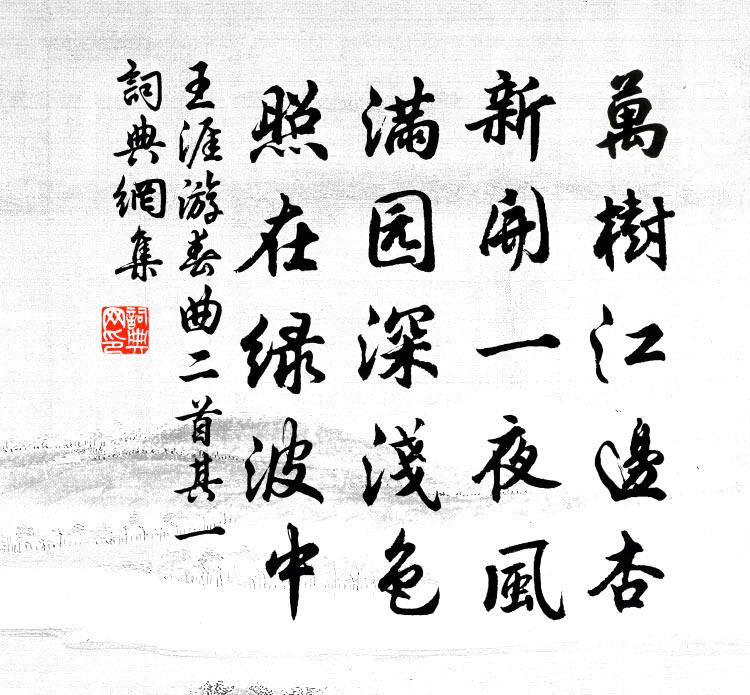 萬樹江邊杏
新開一夜風
滿园深淺色
照在绿波中
王涯游春曲二首其一
詞典網集
詞典網印